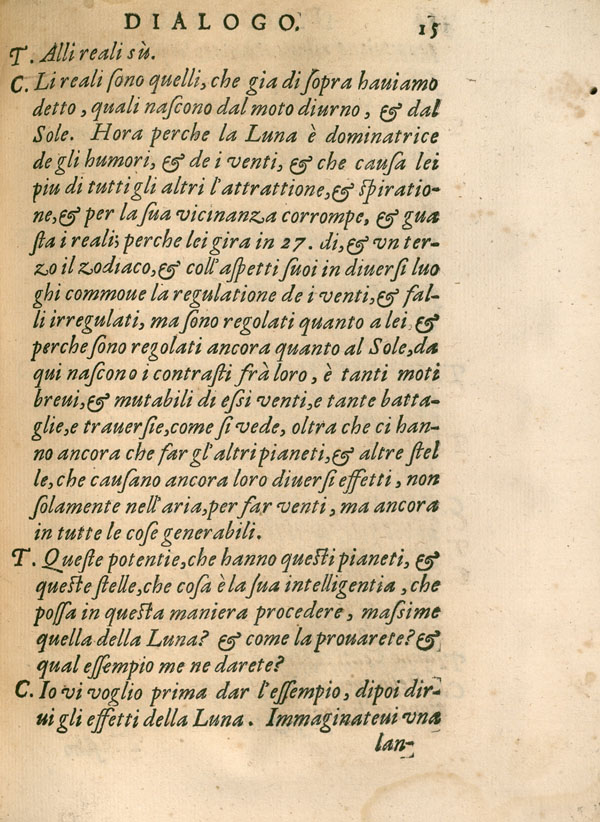 DIALOGO. 15
T. Alli reali sù.
C. Li reali ſono quelli, che gia di ſopra haviamo
detto, quali naſcono dal moto diurno, & dal
Sole. Hora perche la Luna è dominatrice
de gli humori, & de i venti, & che cauſa lei
piu di tutti gli altri l'attrattione, & ſpiratio-
ne, & per la ſua vicinanza corrompe, & gua
ſta i reali; perche lei gira in 27. di, & vn ter-
zo il zodiaco, & coll'aſpetti ſuoi in diuerſi luo
ghi commoue la regulatione de i venti, & fal-
li irregulati, ma ſono regolati quanto a lei, &
perche ſono regolati ancora quanto al Sole, da
qui naſcono i contraſti frà loro, è tanti moti
breui, & mutabili di eſsi venti, e tante batta-
glie, e trauerſie, come ſi vede, oltra che ci han-
no ancora che far gl'altri pianeti, & altre ſtel
le, che cauſano ancora loro diuerſi effetti, non
ſolamente nell'aria, per far venti, ma ancora
in tutte le coſe generabili.
T. Queſte potentie, che hanno queſti pianeti, &
queſte ſtelle, che coſa è la ſua intelligentia, che
poſſa in queſta maniera procedere, maſsime
quella della Luna? & come la prouarete? &
qual eſſempio me ne darete?
C. Io vi voglio prima dar l'eſſempio, dipoi dir-
ui gli effetti della Luna. Immaginateui vna
lan-